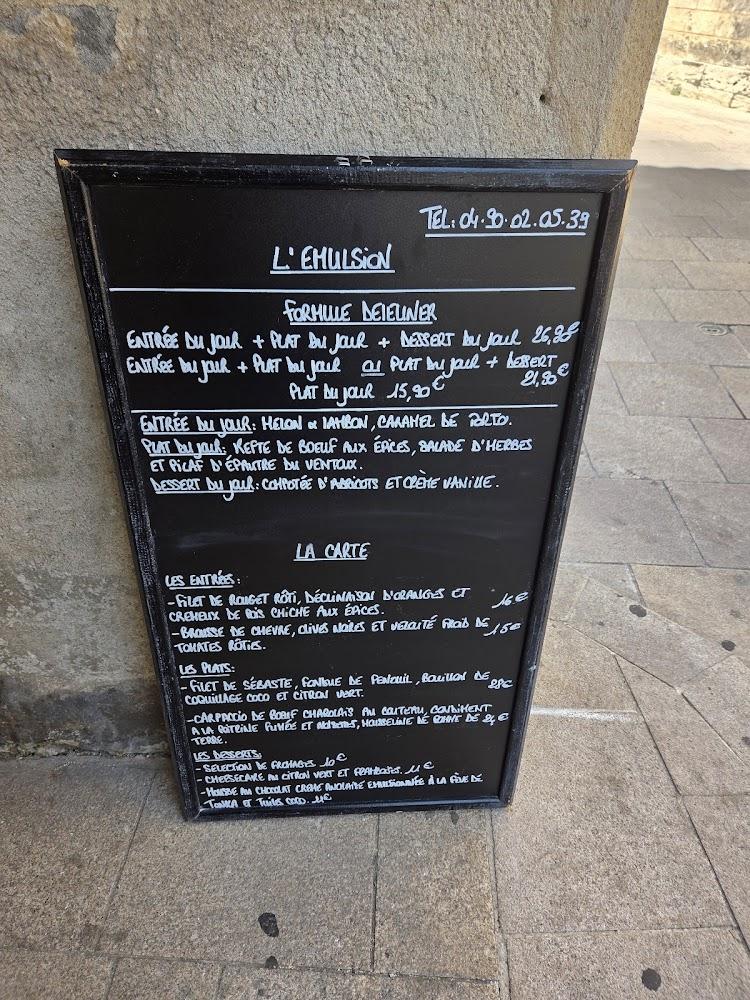 TEL: 04.90.02.05.39
L'EMULSION
FORMULE DEJEUNER
ENTRÉE DU JOUR + PLAT DU JOUR + DESSERT DU JOUR 26,90€
ENTRÉE DU JOUR + PLAT DU JOUR OU PLAT DU JOUR + DESSERT
21,90€
PLAT DU JOUR 15,90€
ENTRÉE DU JOUR: MELON & JAMBON, CARAMEL DE PORTO.
PLAT DU JOUR: KEFTE DE BOEUF AUX ÉPICES, SALADE D'HERBES
ET PILAF D'ÉPAUTRE DU VENTOUX.
DESSERT DU JOUR: COMPOTÉE D'ABRICOTS ET CRÈME VANILLE.
LA CARTE
LES ENTRÉES:
- FILET DE ROUGET RÔTI, DÉCLINAISON D'ORANGES ET
CREMEUX DE POIS CHICHE AUX ÉPICES. 16€
- BROUSSE DE CHEVRE, OLIVES NOIRES ET VELOUTÉ FROID DE 15€
TOMATES RÔTIES.
LES PLATS:
- FILET DE SÉBASTE, FONDUE DE FENOUIL, BOUILLON DE 28€
COQUILLAGE COCO ET CITRON VERT.
- CARPACCIO DE BOEUF CHAROLAIS AU COUTEAU, CONDIMENT
A LA POITRINE FUMÉE ET NOISETTES, MOUSSELINE DE POMME DE 24€
TERRE.
LES DESSERTS:
- SELECTION DE FROMAGES 10€
- CHEESECAKE AU CITRON VERT ET FRAMBOISES. 11€
- MOUSSE AU CHOCOLAT CREME ANGLAISE EMULSIONNÉE À LA FÈVE DE
TONKA ET TUILES COCO. 11€